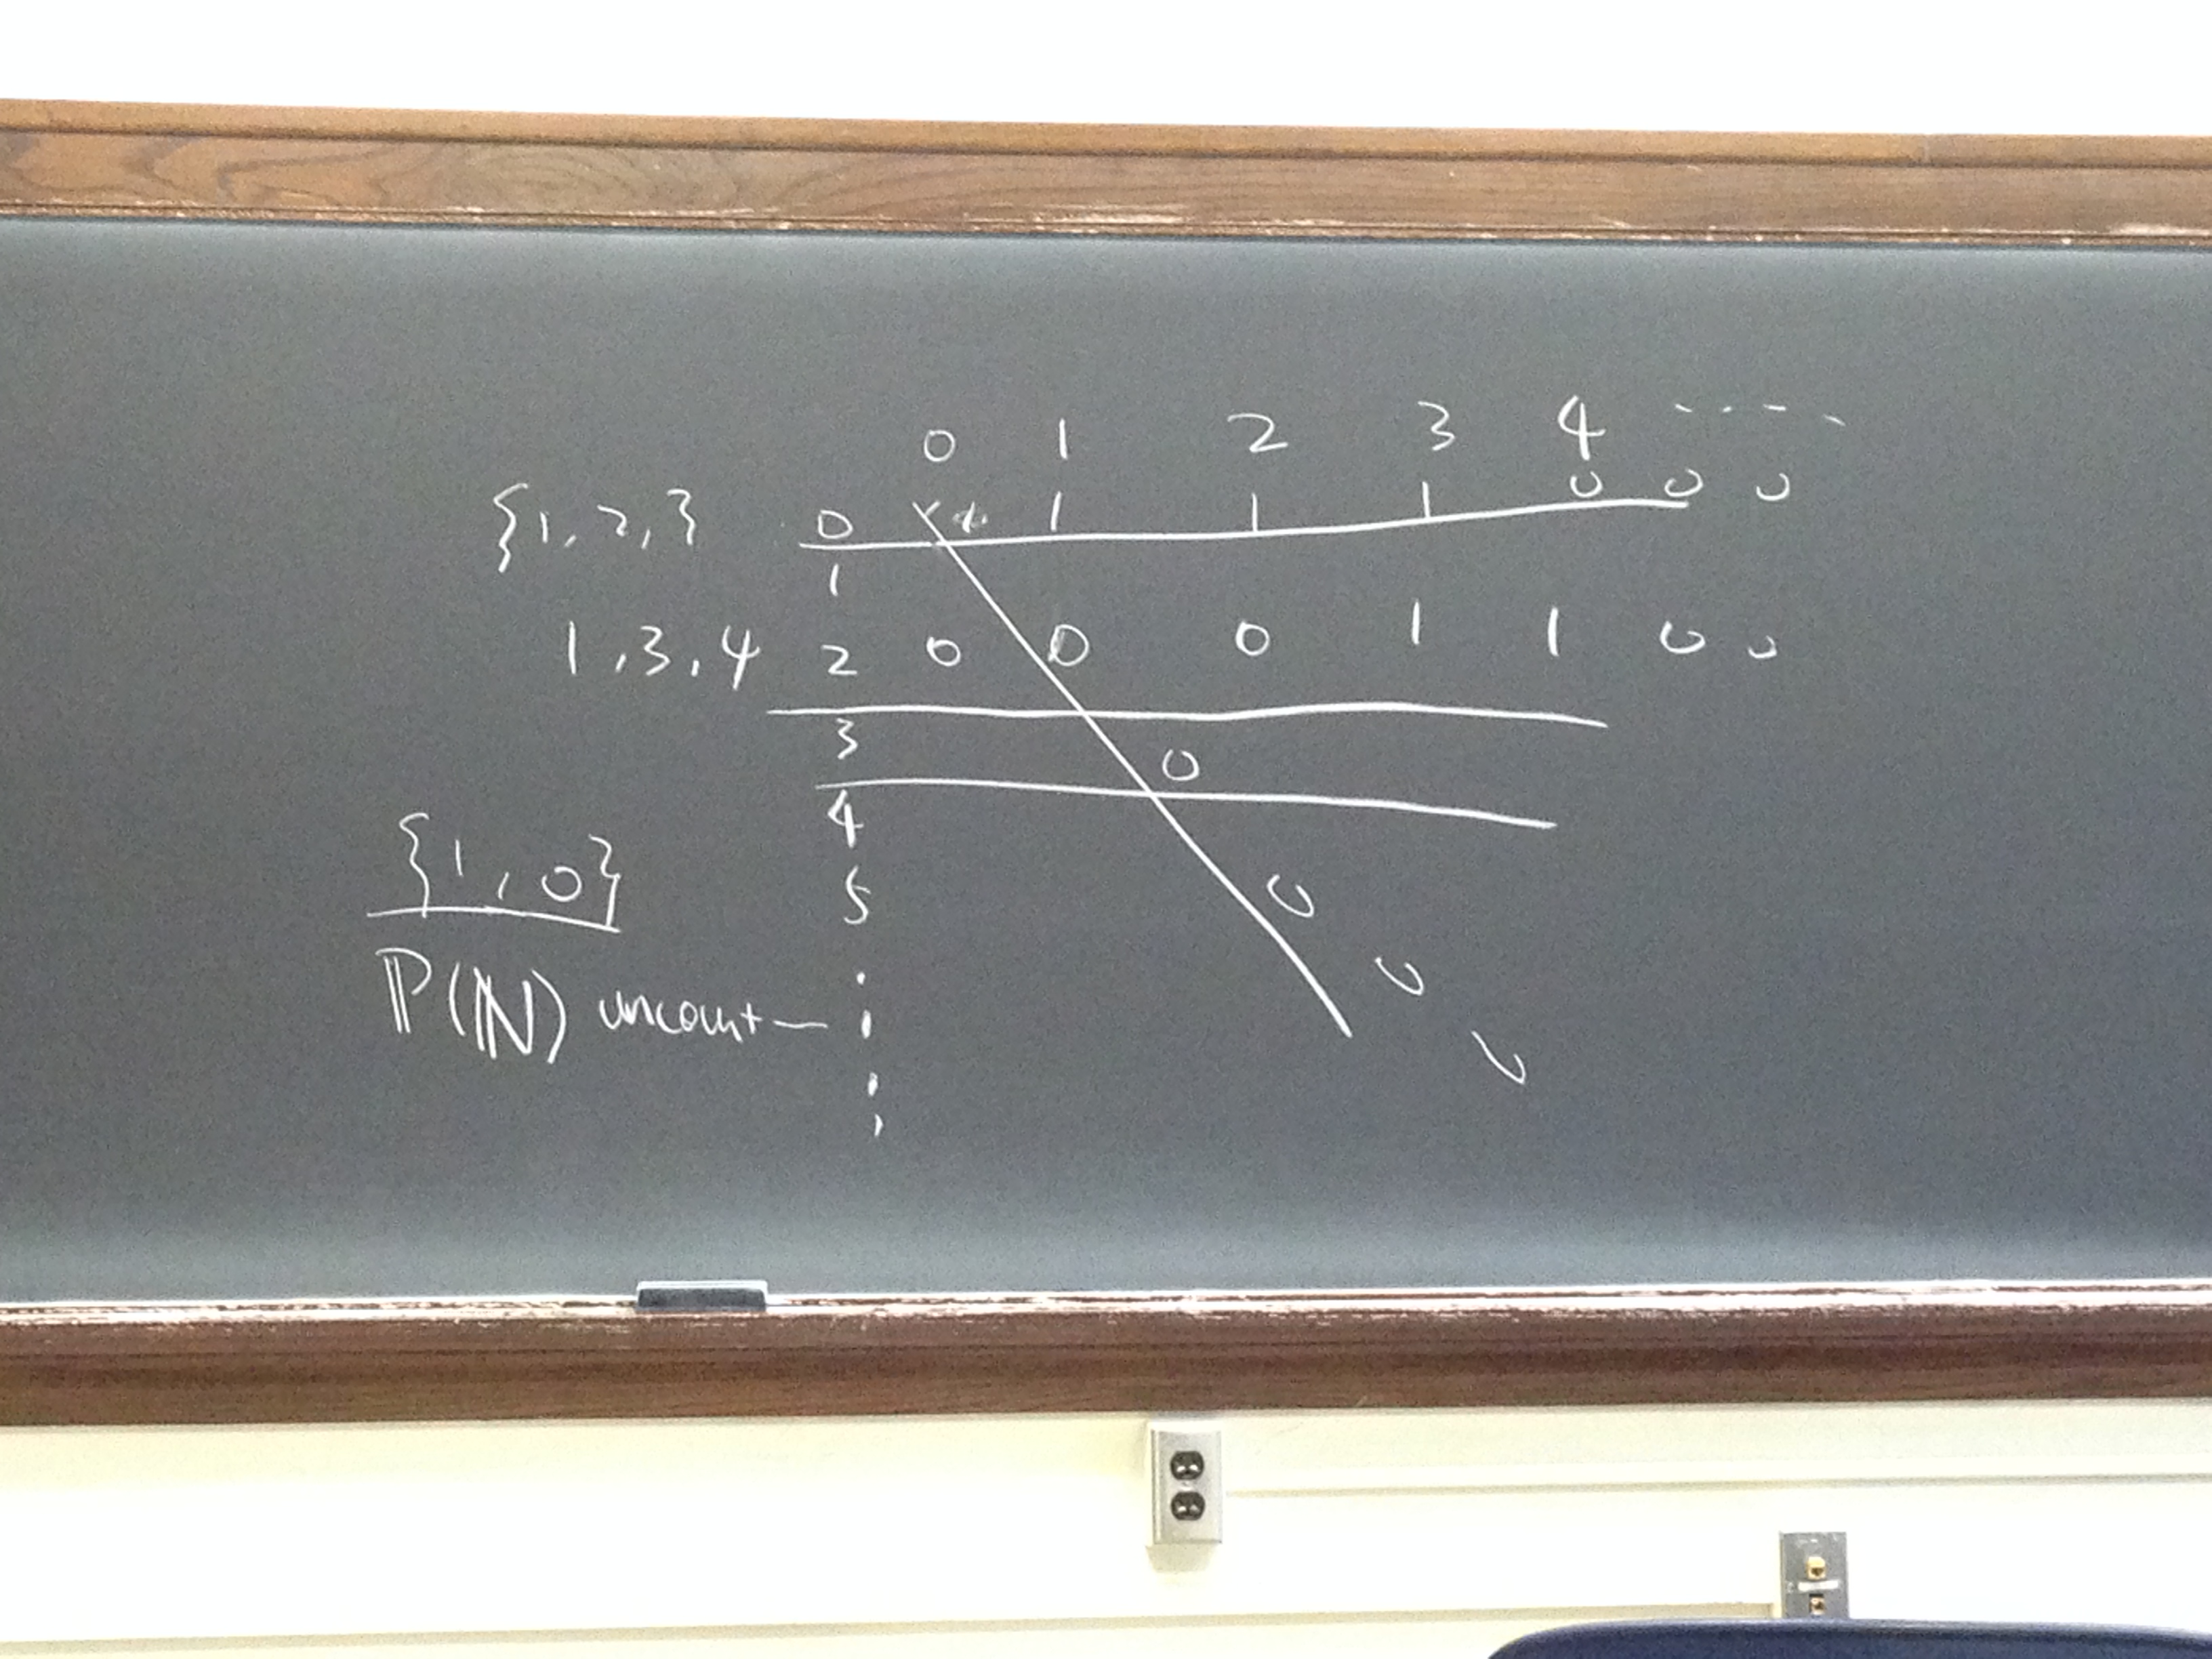 0 1 2 3 4 ....
{1, 2, } 0 1 1 1 0 0 0
1
1, 3, 4 2 0 0 0 1 1 0 0
3 0
4
{1, 0} 5 0
0
P(ℕ) uncount— 0